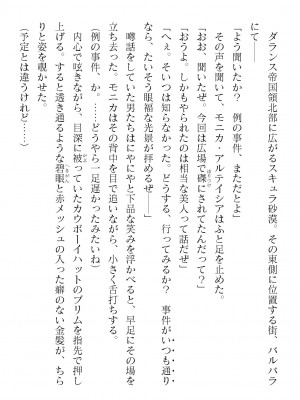 ダランス帝国領北部に広がるスキュラ砂漠。その東側に位置する街、バルバラ
にて――
「よう聞いたか？　例の事件、まただとよ」
その声を聞いて、モニカ・アルテイシアはふと足を止めた。
「おお、聞いたぜ。今回は広場で磔にされてたんだって？」
「ああ。しかもやられたのは相当な美人って話だぜ」
「へぇ。そいつは知らなかった。どうする、行ってみるか？　事件がいつも通り
なら、たいそう眼福な光景が拝めるぜ――」
噂話をしていた男たちはにやにやと下品な笑みを浮かべると、早足にその場を
立ち去った。モニカはその背中を目で追いながら、小さく舌打ちする。
（例の事件、か。……どうやら一足遅かったみたいね）
内心で呟きながら、目深に被っていたカウボーイハットのブリムを指先で押し
上げる。すると透き通るような碧眼と赤メッシュの入った癖のない金髪が、ちら
りと姿を覗かせた。
（予定とは違うけれど……）